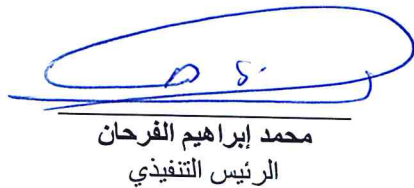 محمد إبراهيم الفرحان
الرئيس التنفيذي